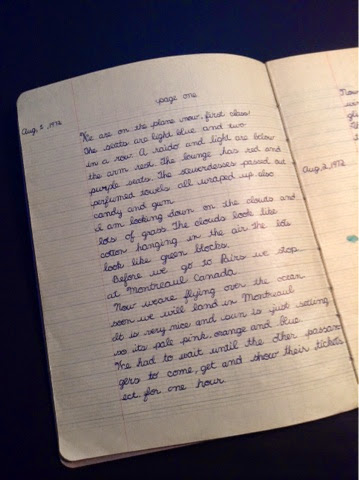 page one
Aug. 2, 1972
We are on the plane now, first class!
The seats are light blue and two
in a row. A raido and light are below
the arm rest. The lounge has red and
purple seats. The stewordesses passed out
perfumed towels all wraped up. also
candy and gum
I am looking down on the clouds and
lots of grass. The clouds look like
cotton hanging in the air. The lots
look like green blocks.
Before we go to Paris we stop
at Montreaul Canada
Now we are flying over the ocean
soon we will land in Montreaul
It is very nice and sun is just setting
so its pale pink, orange and blue
We had to wait until the other passan-
gers to come, get and show their tickets
ect. for one hour
Now
Aug 2, 1972